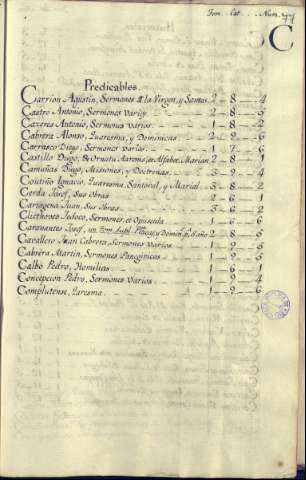 Tom. Est. Num.
C
Predicables.
Carrion Agustin, Sermones de la Virgen, y Santos. 2 - 8 - 4
Castro Antonio, Sermones varios 2 - 8 - 5
Cazeres Antonio, Sermones varios 1 - 8 - 2
Cabrera Alonso, Quaresma, y Dominicas 2 - 9 - 6
Carrasco Diego, Sermones varios 1 - 7 - 6
Castillo Diego, de Ornatu Aaronis, Alfabet. Marian 2 - 8 - 1
Camuñas Diego, Missiones, y Doctrinas 3 - 9 - 4
Coutiño Ignacio, Quaresma, Santoral, y Marial 3 - 8 - 2
Cerda Josef, Sus Obras 2 - 6 - 1
Cartagena Juan, Sus Obras 3 - 6 - 2
Clicthoveo Jodoco, Sermones, et Opuscula 1 - 6 - 1
Caravantes Josef, un Tom. Platicas, y Domin. 2 - 8 - 5
Cavallero Juan Cabrera, Sermones Varios 1 - 9 - 5
Cabrera Martin, Sermones Panegiricos 1 - 9 - 5
Calbo Pedro, Homilias 1 - 6 - 1
Concepcion Pedro, Sermones Varios 1 - 9 - 4
Complutense, Qaresma 1 - 9 - 6